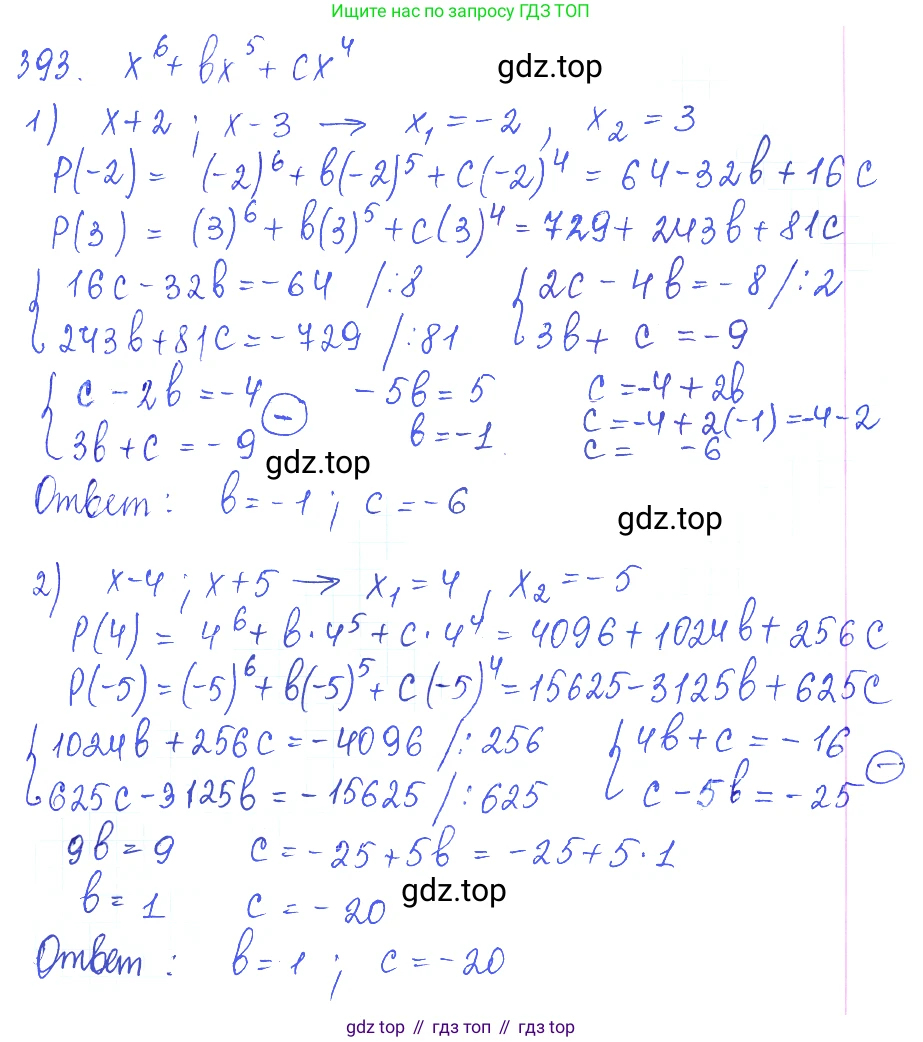 Ищите нас по запросу ГДЗ ТОП
393. x⁶ + bx⁵ + cx⁴
gdz.top
1) x+2 ; x-3 → x₁ = -2 , x₂ = 3
P(-2) = (-2)⁶ + b(-2)⁵ + c(-2)⁴ = 64 - 32b + 16c
P(3) = (3)⁶ + b(3)⁵ + c(3)⁴ = 729 + 243b + 81c
{ 16c - 32b = -64 /:8 { 2c - 4b = -8 /:2
243b + 81c = -729 /:81 3b + c = -9
{ c - 2b = -4 ⊖ -5b = 5 c = -4 + 2b
3b + c = -9 b = -1 c = -4 + 2(-1) = -4 - 2
c = -6
gdz.top
Ответ: b = -1 ; c = -6
gdz.top
2) x-4 ; x+5 → x₁ = 4 , x₂ = -5
P(4) = 4⁶ + b·4⁵ + c·4⁴ = 4096 + 1024b + 256c
P(-5) = (-5)⁶ + b(-5)⁵ + c(-5)⁴ = 15625 - 3125b + 625c
{ 1024b + 256c = -4096 /:256 { 4b + c = -16 ⊖
625c - 3125b = -15625 /:625 c - 5b = -25
9b = 9 c = -25 + 5b = -25 + 5·1
b = 1 c = -20
gdz.top
Ответ: b = 1 ; c = -20
gdz top // гдз топ // гдз top